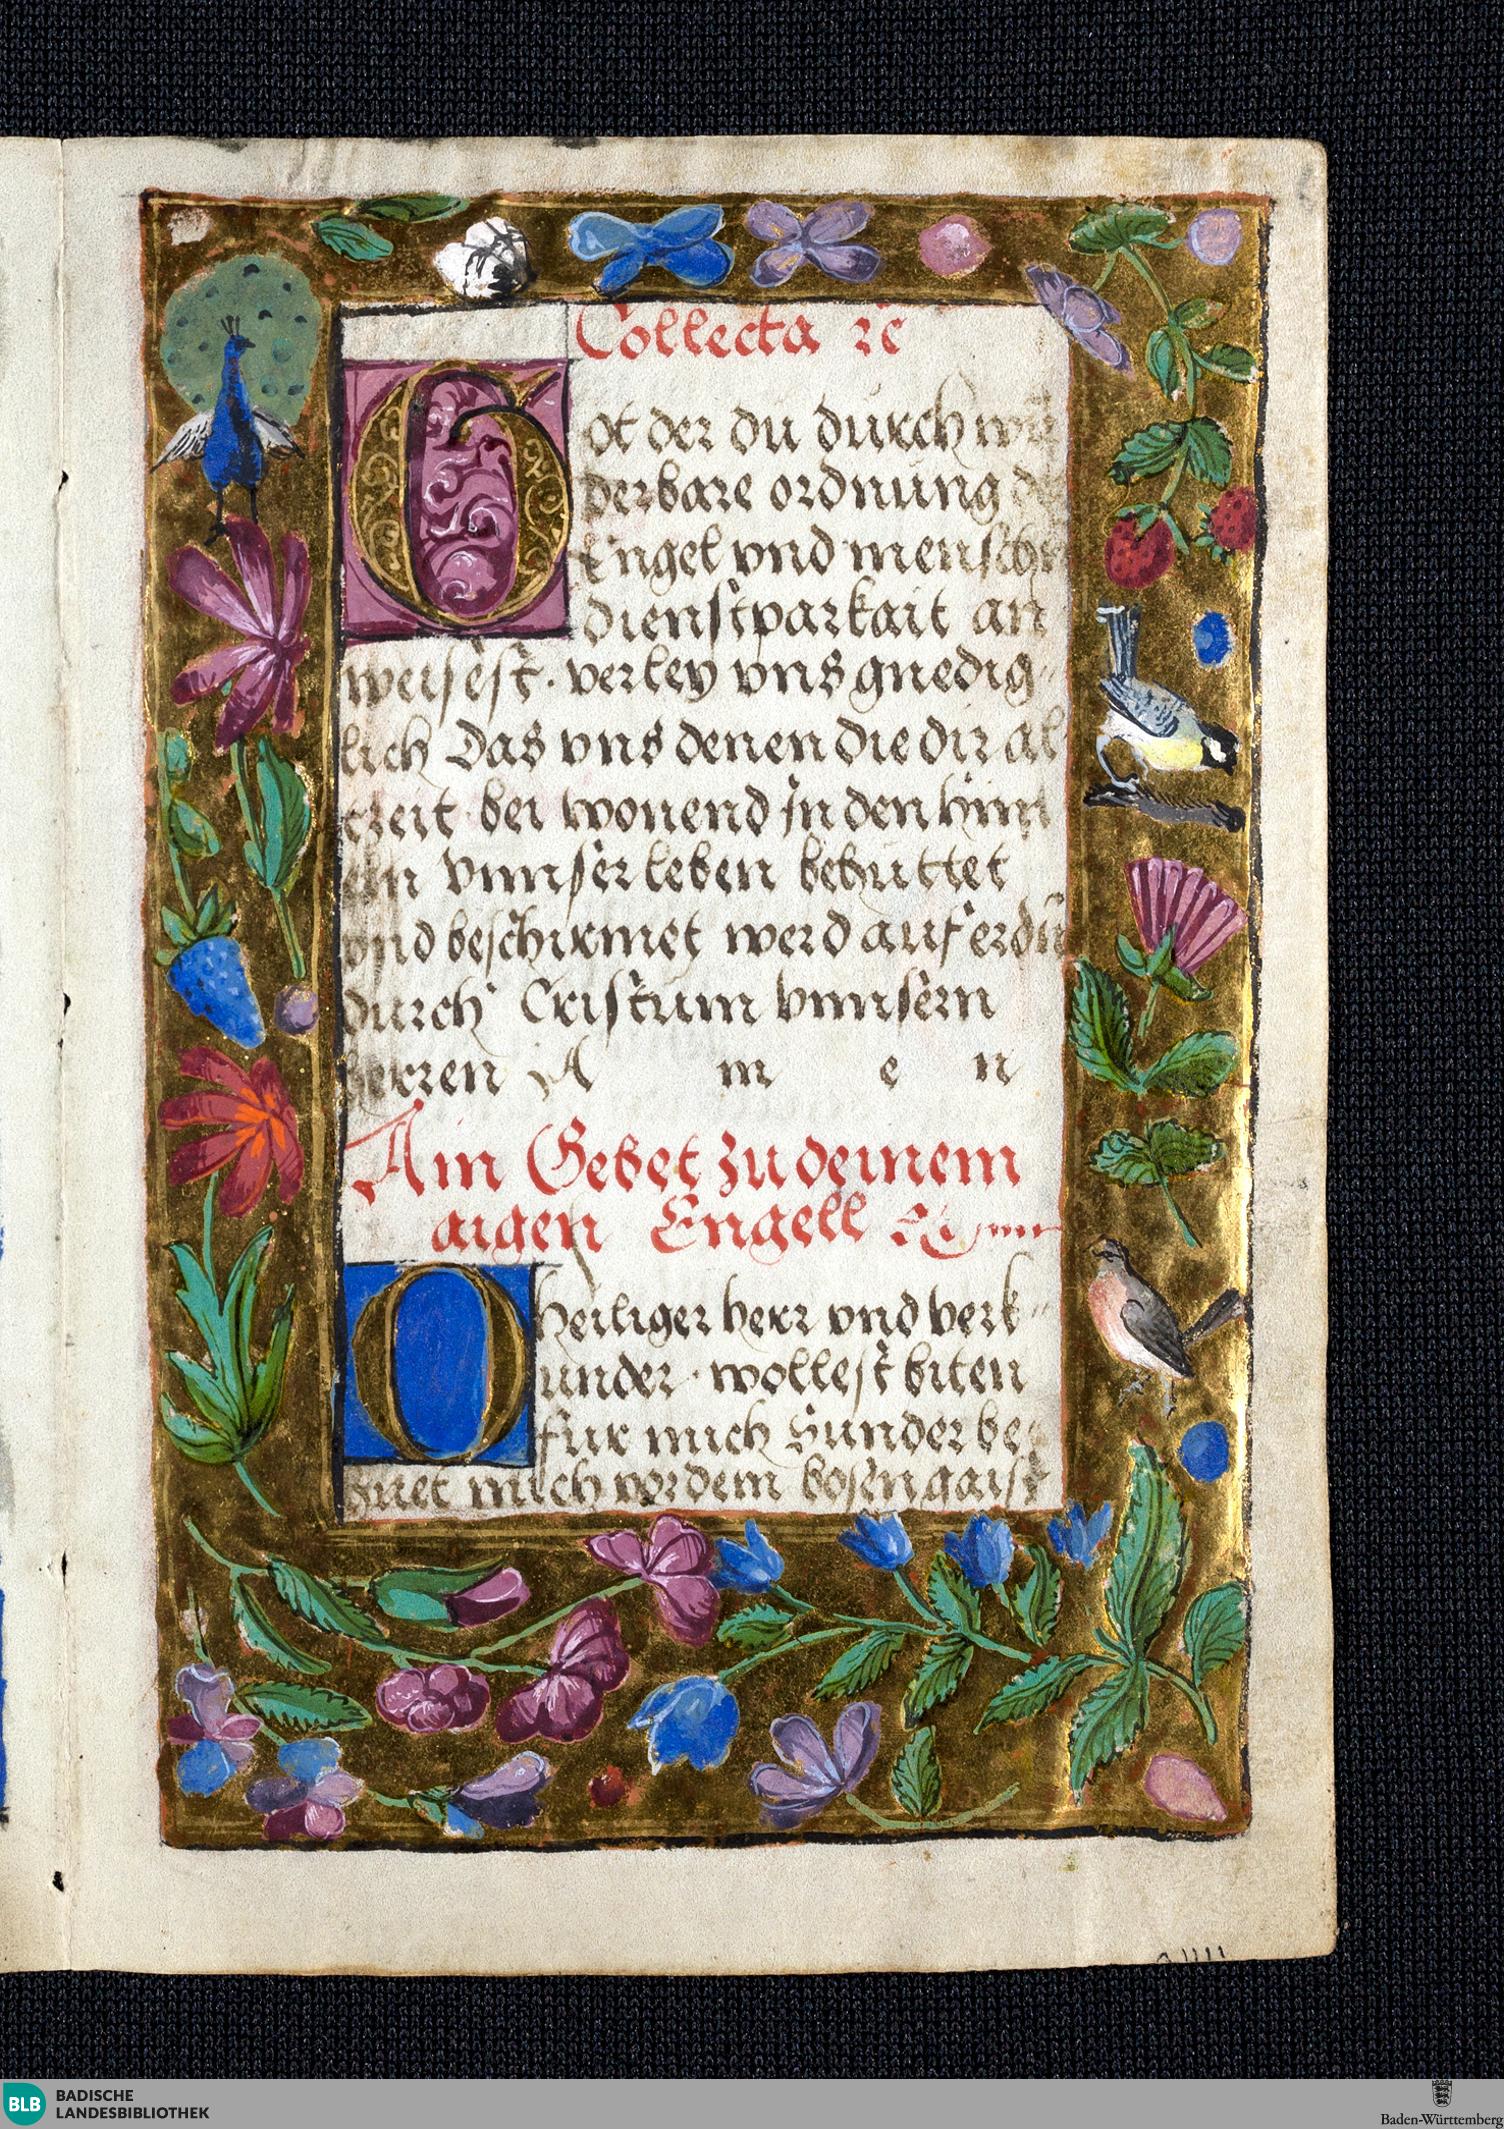 Collecta ꝛc̄
Got der du durch wū
derbare ordnung d
Engel vnd mensche
dienstparkait an
weisest · verley vns gnedig
lich Das vns denen die dir al
tzeit bei wonend in den him
eln vnnser leben behuttet
vnd beschirmet werd auf erdn̄
durch Cristum vnnsern
herren A m e n
Ain Gebet zu deinem
aigen Engell ꝛc
O heiliger herr vnd verk
under · wollest biten
fur mich Sunder be
huet mich vor dem bosen gaist
BLB BADISCHE
LANDESBIBLIOTHEK
Baden-Württemberg